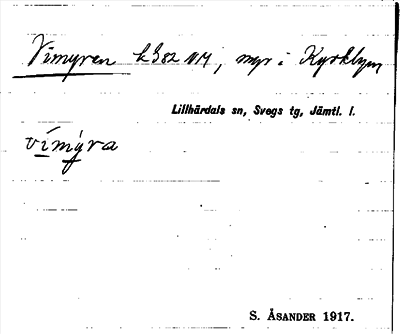 Vimyren k382 NM, myr i Kyrkbyn
Lillhärdals sn, Svegs tg, Jämtl. l.
vímýra
S. ÅSANDER 1917.